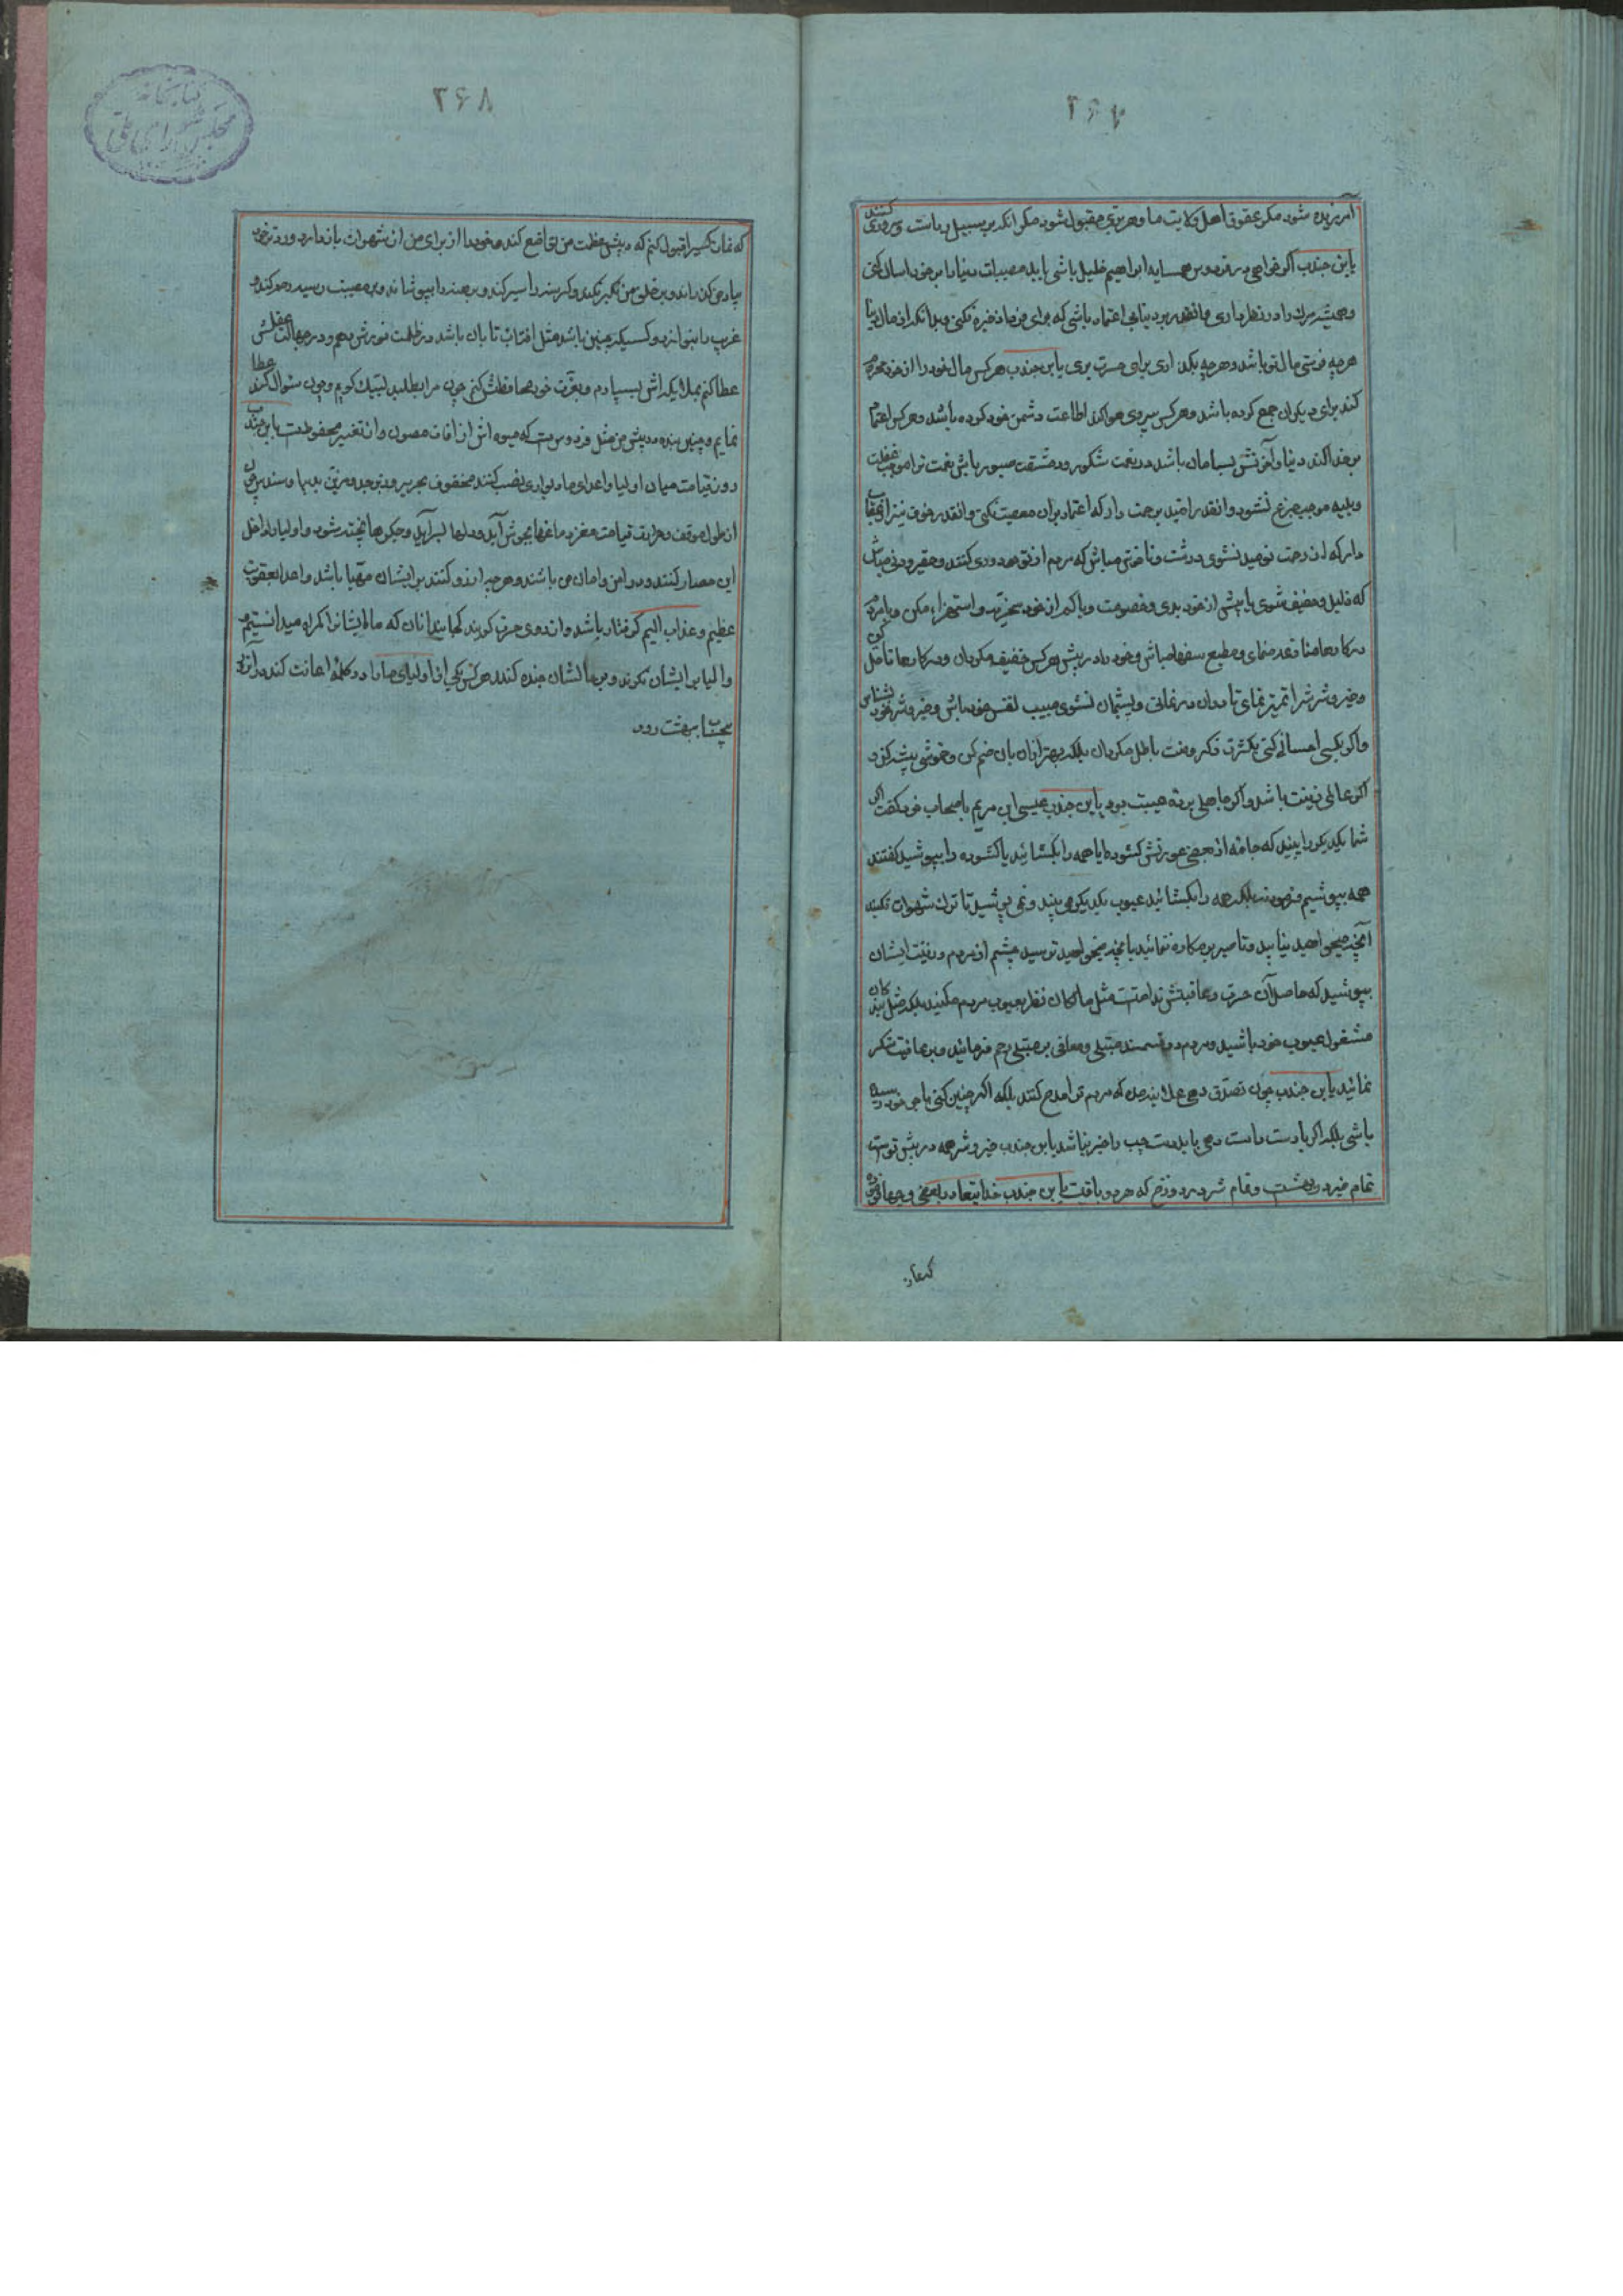 ۲۶۷
آمرزیده شود مکر عقوق اهل ولایت ما و هر بری مقبول شود مکر انکه بر سبیل ریاست
یابن جندب اکر خواهی در فردوس همسایه ابراهیم خلیل باشی باید مصیبات دنیا را بر خود اسان کنی
و همیشه مرک را در نظر داری و انقدر بر دنیا بی اعتماد باشی که برای فردا ذخیره نکنی و بدانکه از مال دنیا
هرچه فرستی مال تو باشد و هرچه بکذاری برای حسرت بری یابن جندب هرکس مال خود را از خود محروم
کند برای دیکران جمع کرده باشد و هرکس پیروی هوا کند اطاعت دشمن خود کرده باشد و هرکس اعتماد
بر خدا کند دنیا و آخرتش بسامان باشد در نعمت شکور و در مشقت صبور باش نعمت ترا موجب غفلت
و بلیه موجب جزع نشود و انقدر امید برحمت دار که اعتماد بران معصیت نکنی و انقدر خوف نیز از عقاب
دار که از رحمت نومید نشوی درشت و ناخوش مباش که مردم از تو دوری کنند و حقیر و دنی مباش
که ذلیل و خفیف شوی با پیش از خود بدی و خصومت و با کمتر از خود سخریه و استهزاء مکن و با مردم
در کارها منازعه منمای و مطیع سفها مباش و خود را در پیش هرکس خفیف مکردان و در کارها تامل کن
و خیر و شرش را تمیز نمای تا دران درنمانی و پشیمان نشوی حبیب نفس خود باش و خیر و شر خود بشناس
و اکر بکسی احسانی کنی بکثرت ذکر و منت باطل مکردان بلکه بهتر ازان بان ضم کن و خموشی پیشه کن
اکر عالمی زینت باشد و اکر جاهلی پرده هیبت بود یابن جندب عیسی ابن مریم باصحاب خود کفت اکر
شما یکدیکر را ببینید که جامه از بعضی عورتش کشوده ایا همه را بکشائید یا کشوده را بپوشید کفتند
همه بپوشیم فرمود نه بلکه همه را بکشائید عیوب یکدیکر می بینید و نمی پوشید تا ترک شهوات نکنید
آنچه میخواهید نیابید و تا صبر بر مکاره ننمائید بانچه میخواهید نرسید چشم از مردم و زینت ایشان
بپوشید که حاصل آن حسرت و عاقبتش ندامتست مثل مالکان نظر بعیوب مردم مکنید بلکه مثل بندکان
مشغول عیوب خود باشید و مردم دو قسمند مبتلی و معافی بر مبتلی رحم فرمائید و بر عافیت شکر
نمائید یابن جندب چون تصدق دهی علانیه مده که مردم ترا مدح کنند بلکه اکر چنین کنی باجر خود رسیده
باشی بلکه اکر با دست راست دهی باید دست چپ را خبر نباشد یابن جندب خیر و شر همه در پیش توست
تمام خیر در بهشت و تمام شر در دوزخ که هر دو باقیست یابن جندب خدایتعالی در بعضی وحیها فرموده
که نماز
۲۶۸
که نماز کسیرا قبول کنم که در پیش عظمت من تواضع کند و خود را از برای من از شهوات بازدارد و روز خود
بیاد من کذراند و بر خلق من تکبر نکند و کرسنه را سیر کند و برهنه را بپوشاند و بر مصیبت رسیده رحم کند و
غریب را بنوازد و کسیکه چنین باشد مثل افتاب تابان باشد در ظلمت نورش دهم و در جهالت عقلش
عطا کنم بملایکه اش بسپارم و بعزت خود محافظتش کنم چون مرا بطلبد لبیک کویم و چون سئوال کند عطا
نمایم و چنین بنده در پیش من مثل فردوس است که میوه اش از افات مصون و از تغییر محفوظست یابن جندب
روز قیامت میان اولیا و اعدای ما دیواری نصب کنند محفوف بحریر و زبرجد و مزین بدیبا و سندس چون
از طول موقف و حرارت قیامت مغز دماغها بجوش آید و دلها بسر آید و جکرها پخته شود و اولیا را داخل
این حصار کنند و در امن و امان می باشند و هرچه ارزو کنند بر ایشان مهیا باشد و اعدا بعقوبت
عظیم و عذاب الیم کرفتار باشد و از روی حسرت کویند کجایند انان که ما ایشانرا کمراه میدانستیم
و اولیا بر ایشان نکرند و بر حالشان خنده کنند هرکس یکی از اولیای ما را در کلمه اعانت کند در آنروز
بیحساب ببهشت رود
کتابخانه مجلس شورای ملی